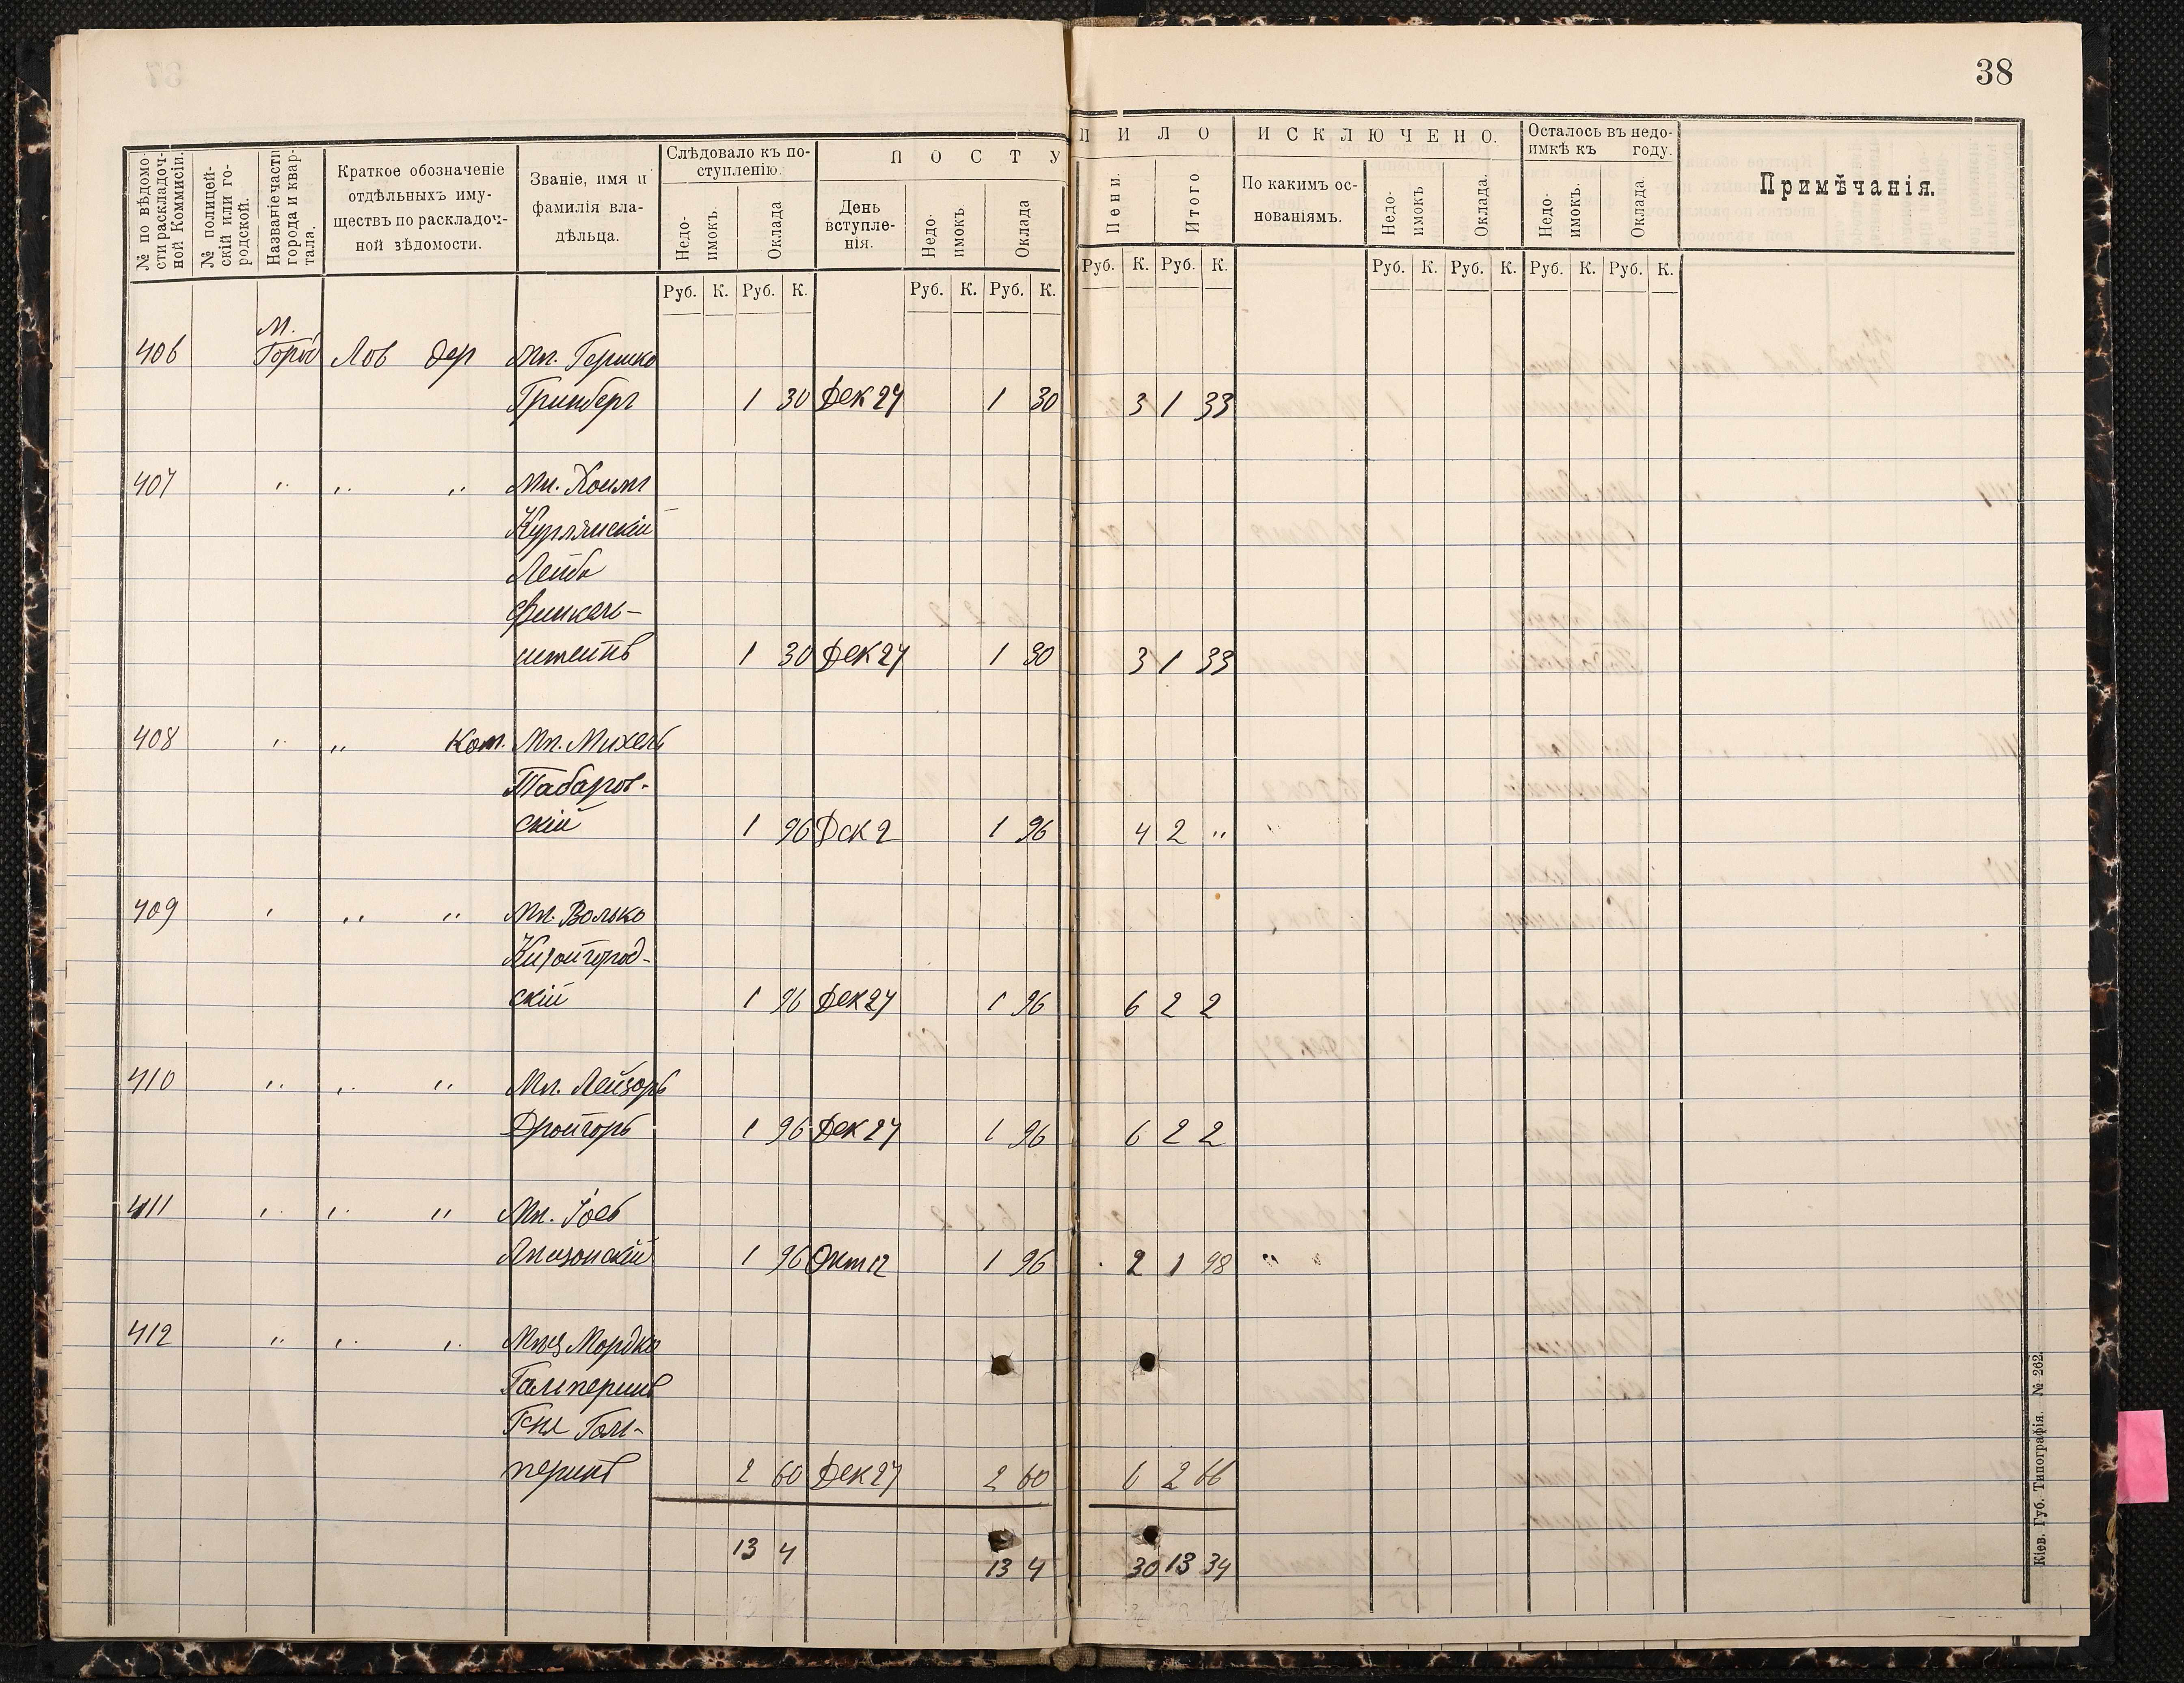 38
№ по вѣдомо-
сти раскладоч-
ной Коммисіи.
№ полицей-
скій или го-
родской.
Названіе части
города и квар-
тала.
Краткое обозначеніе
отдѣльныхъ иму-
ществъ по раскладоч-
ной вѣдомости.
Званіе, имя и
фамилія вла-
дѣльца.
Слѣдовало къ по-
ступленію.
Недо-
имокъ.
Оклада
П О С Т У П И Л О
День
вступле-
нія.
Недо-
имокъ.
Оклада
Пени.
Итого
И С К Л Ю Ч Е Н О.
По какимъ ос-
нованіямъ.
Недо-
имокъ
Оклада.
Осталось въ недо-
имкѣ къ году.
Недо-
имокъ.
Оклада.
Примѣчанія.
Руб. К. Руб. К. Руб. К. Руб. К. Руб. К. Руб. К. Руб. К. Руб. К. Руб. К. Руб. К.
М.
406 Город Лав дер Мщ. Гершко
Гринберг 1 30 Дек 27 1 30 3 1 33
407 " " " Мщ. Хоим
Курлянскій
Лейба
Финкель-
штейнъ 1 30 Дек 27 1 30 3 1 33
408 " " Кам. Мщ. Михель
Табаров-
скій 1 96 Дек 2 1 96 4 2 "
409 " " " Мщ. Волько
Китайгород-
скій 1 96 Дек 27 1 96 6 2 2
410 " " " Мщ. Лейзоръ
1 96 Дек 27 1 96 6 2 2
411 " " " Мщ. Іось
1 96 Окт 12 1 96 2 1 98 " "
412 " " " Мщ Мордко
Гальперинъ
Галь-
перинъ 2 60 Дек 27 2 60 6 2 66
13 4 13 4 30 13 34
Кіев. Губ. Типографія. № 262.